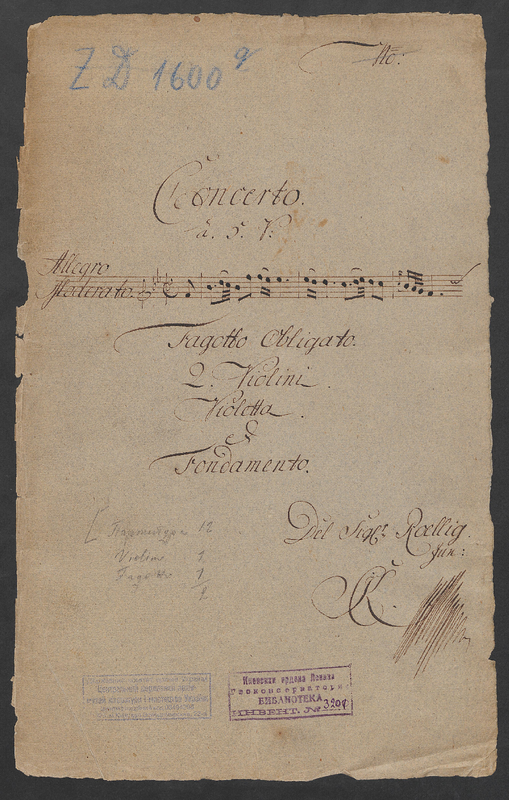 Z D 1600 q
No:
Concerto.
à. 5. V:
Allegro
Moderato.
Fagotto Obligato.
2. Violini.
Violetta.
&
Fondamento.
Del Sigr. Rœllig.
Jun:
Партитура 12
Violini 1
Fagotto 1
1
Киевская ордена Ленина
Госконсерватория
БИБЛИОТЕКА
ИНВЕНТ. № 3204